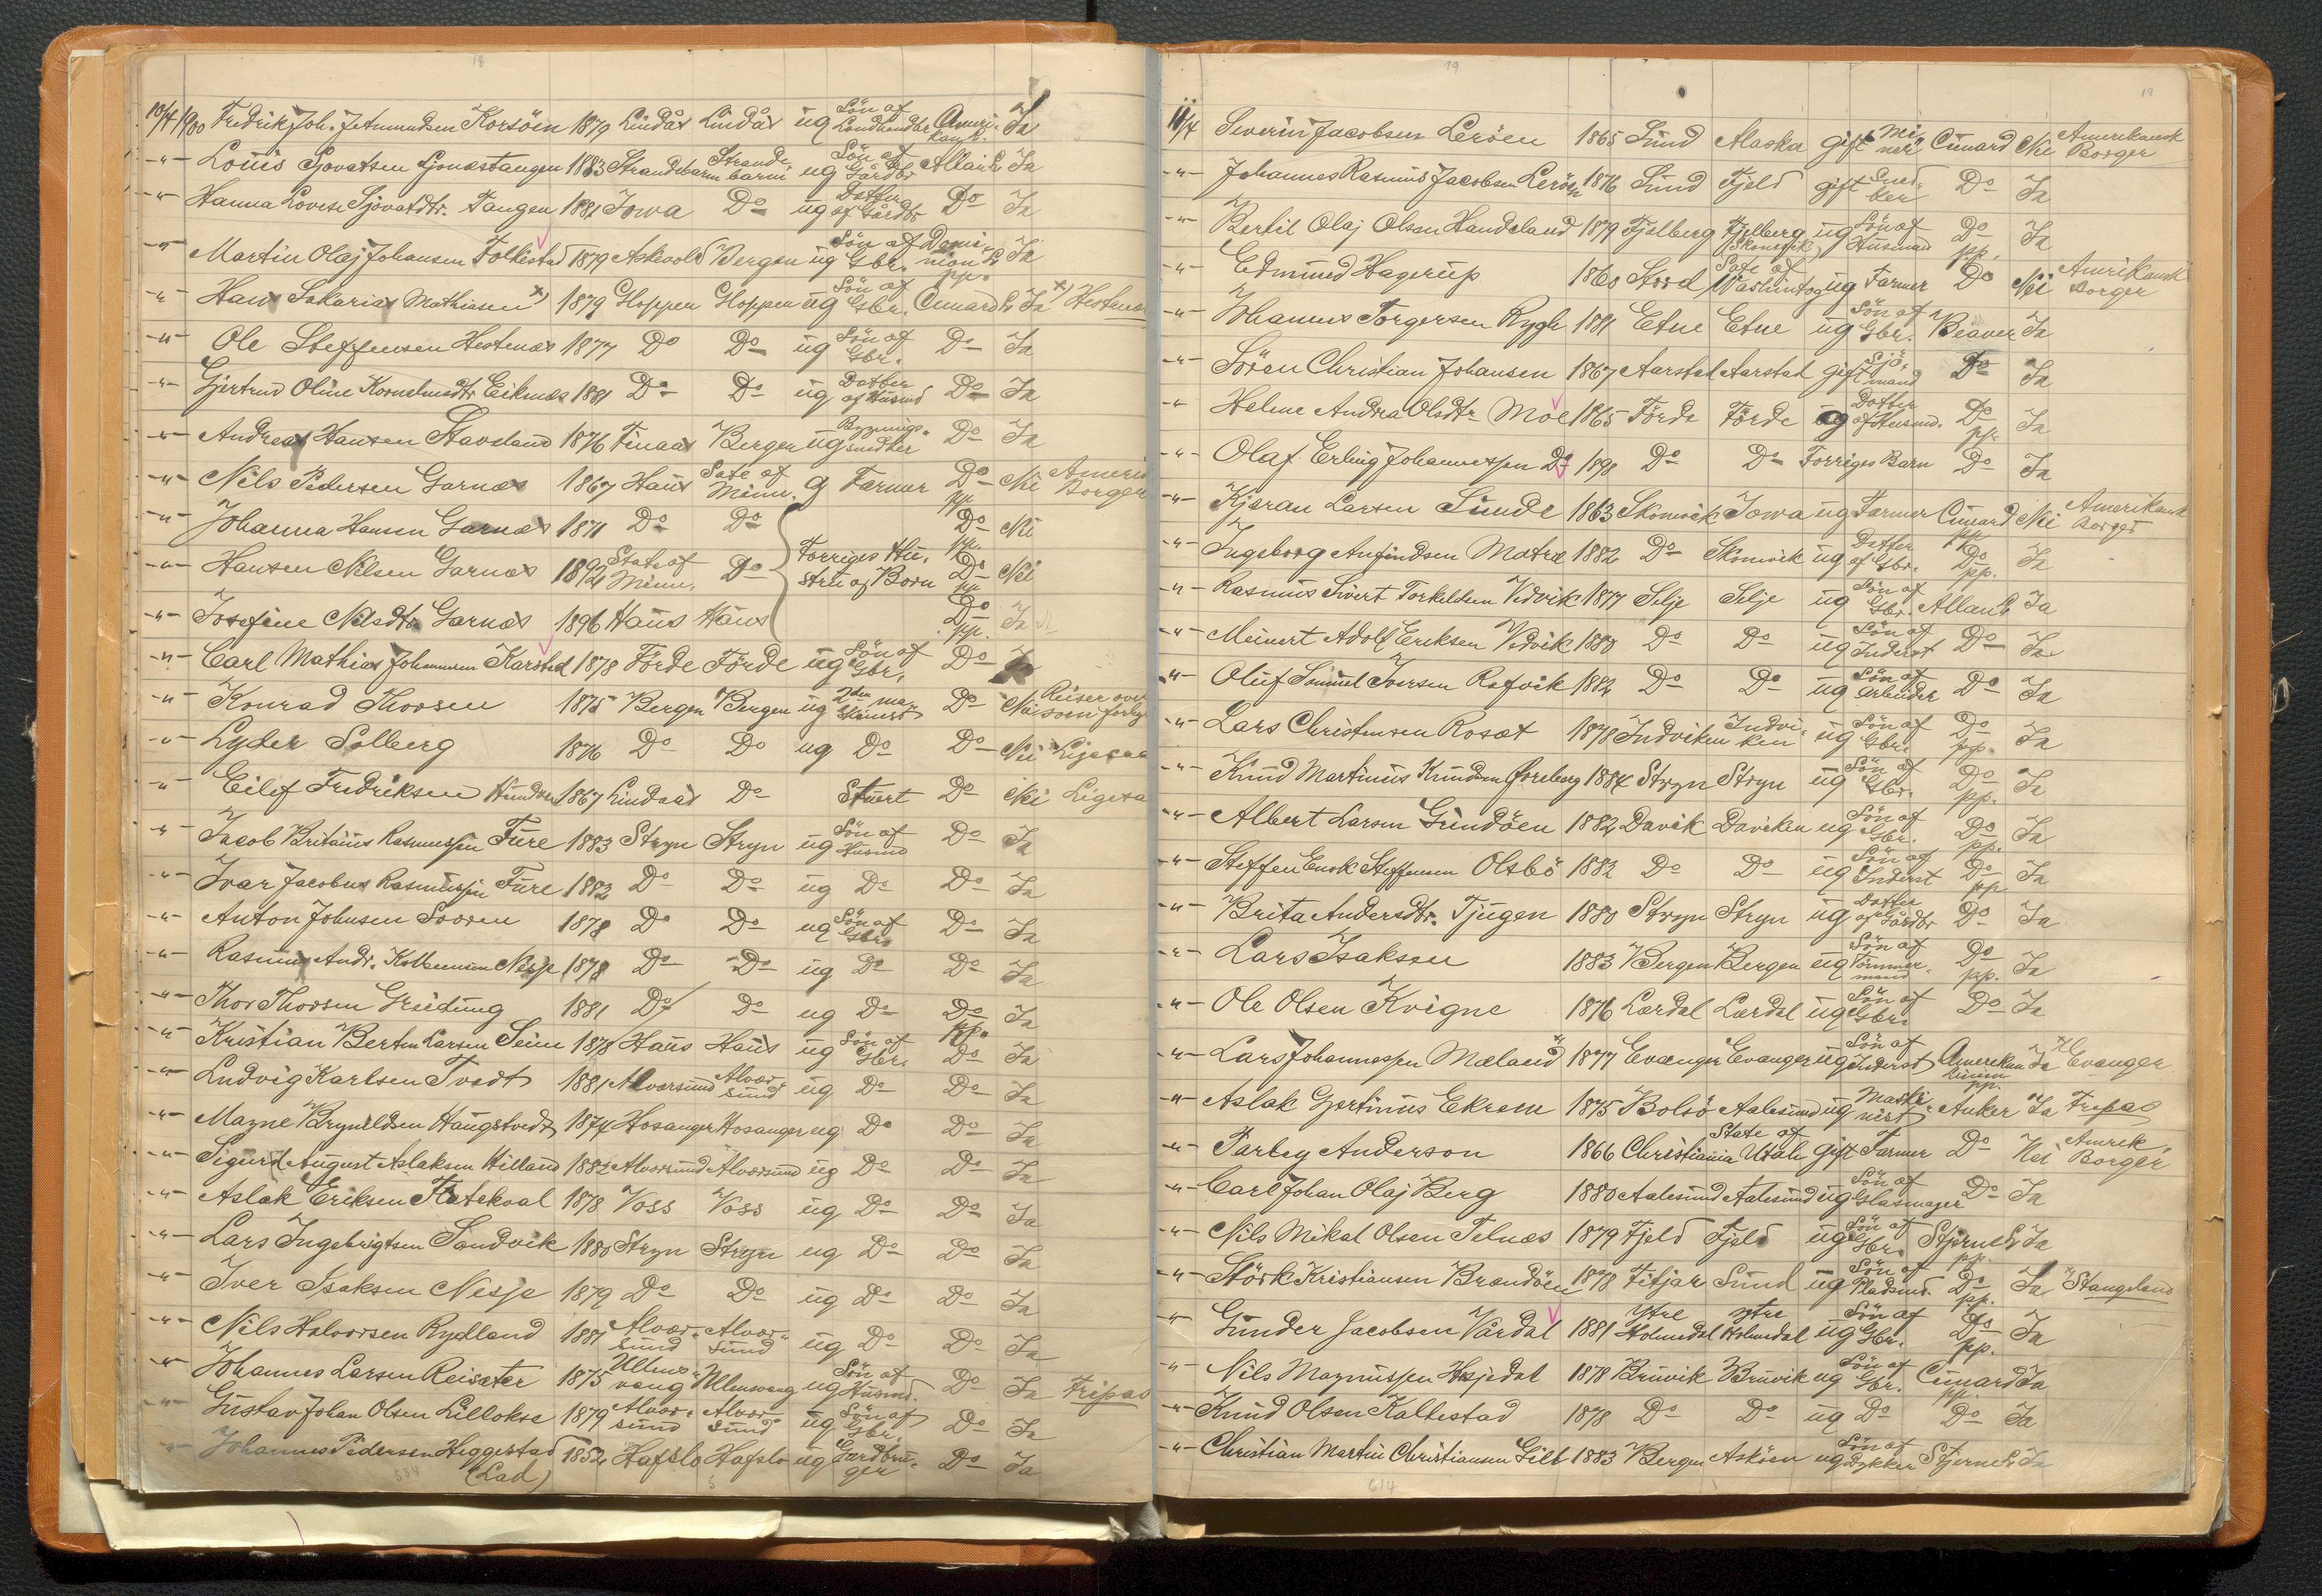 18
10/4 1900 Fredrik Joh. Jetmundsen Korsöen 1879 Lindås Lindås ug Sön af Landhandler Ameri-kansk Ja
-"- Louis Sjovatsen 1883 Strandebarm Strandebarm ug Sön af Gårdbr Allanl. Ja
-"- Hanna Lovise Sjovatdtr. Tangen 1881 Iowa Do ug Datter af Gårdbr Do Ja
-"- Martin Olaj Johansen Follestad 1879 Askevold Bergen ug Sön af Gbr. Dominion L. pp. Ja
-"- Hans Sakarias Mathiasen x) 1879 Gloppen Gloppen ug Sön af Gbr. Cunard L. Ja x) Hestenes
-"- Ole Steffensen Hestenæs 1877 Do Do ug Sön af Gbr. Do Ja
-"- Gjertrud Oline Kornelinsdtr Eiknæs 1881 Do Do ug Datter af Husmd Do Ja
-"- Andreas Hansen Staveland 1876 Finaas Bergen ug Bygnings-snedker Do Ja
-"- Nils Pedersen Garnæs 1867 Haus State of Minn. g Farmer Do pp Nei Amerik Borger
-"- Johanna Hansen Garnæs 1871 Do Do Forriges Hu-stru og Born Do pp. Nei
-"- Hansen Nilsen Garnæs 1892 State of Minn. Do Do pp Nei
-"- Josefine Nilsdtr. Garnæs 1896 Haus Haus Do pp. Ja
-"- Carl Mathias Johannesen Karstad 1878 Förde Förde ug Sön af Gbr. Do Ja
-"- Konrad Thorsen 1875 Bergen Bergen ug 2den maskinist Do Nei Reiser over som
-"- Lyder Solberg 1876 Do Do ug Do Do Nei Ligesaa
-"- Eilef Fredriksen 1867 Lindaas Do Stuert Do Nei Ligesaa
-"- Jacob Britanus Rasmussen Fure 1883 Stryn Stryn ug Sön af Husmd Do Ja
-"- Ivar Jacobus Rasmussen Fure 1882 Do Do ug Do Do Ja
-"- Anton Johnsen Sooren 1878 Do Do ug Sön af Gbr Do Ja
-"- Rasmus Andr. Kolbeinsen Nesje 1878 Do Do ug Do Do Ja
-"- Thor Thorsen Greidung 1881 Do Do ug Do Do pp. Ja
-"- Kristian Bertin Larsen Seim 1878 Haus Haus ug Sön af Gbr. Do Ja
-"- Ludvig Karlsen Tvedt 1881 Alversund Alver-sund ug Do Do Ja
-"- Magne Brynildsen Haugstvedt 1874 Hosanger Hosanger ug Do Do Ja
-"- Sigurd August Aslaksen Hilland 1882 Alversund Alversund ug Do Do Ja
-"- Aslak Eriksen Flatekval 1878 Voss Voss ug Do Do Ja
-"- Lars Ingebrigtsen Sandvik 1880 Stryn Stryn ug Do Do Ja
-"- Iver Isaksen Nesje 1879 Do Do ug Do Do Ja
-"- Nils Halvorsen Rydland 1881 Alver-sund Alver-sund ug Do Do Ja
-"- Johannes Larsen Reisæter 1875 Ullens-vang Ullensvang ug Sön af Husmd. Do Ja Fripas
-"- Gustav Johan Olsen Lillokse 1879 Alver-sund Alver-sund ug Sön af Gbr. Do Ja
-"- Johannes Pedersen Heggestad (Lad) 1852 Hafslo Hafslo ug Gardbru-ger Do Ja
584
19
11/4 Severin Jacobsen Leröen 1865 Sund Alaska gift Mi-ner Cunard Nei Amerikansk Borger
-"- Johannes Rasmus Jacobsen Leröen 1876 Sund Fjeld gift Sned-ker Do Ja
-"- Bertil Olaj Olsen Handeland 1879 Fjelberg Fjelberg (Skonevik) ug Sön af Husmand Do pp. Ja
-"- Edmund Hagerup 1860 Stord State of Washintog ug Farmer Do Nei Amerikansk Borger
-"- Johannes Torgersen Rygh 1881 Etne Etne ug Sön af Gbr. Beaver Ja
-"- Sören Christian Johansen 1867 Aarstad Aarstad gift Sjö-mand Do Ja
-"- Helene Andrea Olsdtr. Moe 1865 Förde Förde ug Datter af Husmd. Do pp. Ja
-"- Olaf Erling Johannessen Do 1898 Do Do Forriges Barn Do Ja
-"- Kjeran Larsen Sunde 1863 Skonevik Iowa ug Farmer Cunard pp Nei Amerikansk Borger
-"- Ingeborg Anfindsen Matre 1882 Do Skonevik ug Datter af Gbr. Do pp. Ja
-"- Rasmus Sivert Torkeldsen Vedvik 1877 Selje Selje ug Sön af Gbr. Allanl. Ja
-"- Meinert Adolf Eriksen Vedvik 1880 Do Do ug Sön af Inderst Do Ja
-"- Oluf Samuel Iversen Refvik 1882 Do Do ug Sön af Arbeider Do Ja
-"- Lars Christensen Roset 1878 Indviken Indvi-ken ug Sön af Gbr. Do pp. Ja
-"- Knud Martinus Knudsen 1884 Stryn Stryn ug Sön af Gbr. Do pp. Ja
-"- Albert Larsen Grindöen 1882 Davik Daviken ug Sön af Gbr. Do pp. Ja
-"- Steffen Enok Steffensen Olsbö 1882 Do Do ug Sön af Inderst Do pp Ja
-"- Brita Andersdtr. Tjugen 1880 Stryn Stryn ug Datter af Gårdbr Do Ja
-"- Lars Isaksen 1883 Bergen Bergen ug Sön af Tömmer-mand Do pp. Ja
-"- Ole Olsen Kvigne 1876 Lærdal Lærdal ug Sön af Gbr. Do Ja
-"- Lars Johannessen Mæland 1877 Evanger Evanger ug Sön af Inderst Amerikan linien pp. Ja Evanger
-"- Aslak Gjertinus Ekrem 1875 Bolsö Aalesund ug Maski-nist Anker Ja Fripas
-"- Tarbey Anderson 1866 Christiania State of Utah gift Farmer Do Nei Amerik Borger
-"- Carl Johan Olaj Berg 1880 Aalesund Aalesund ug Sön af Glasmager Do Ja
-"- Nils Mikal Olsen Telnæs 1879 Fjeld Fjeld ug Sön af Gbr. Stjernel. pp. Ja
-"- Störk Kristiansen Brandöen 1878 Fitjar Sund ug Sön af Pladsmd. Do pp. Ja Stangeland
-"- Gunder Jacobsen Vårdal 1881 Ytre Holmedal Ytre Holmedal ug Sön af Gbr. Do pp. Ja
-"- Nils Magnussen Hesjedal 1878 Bruvik Bruvik ug Sön af Gbr. Cunard pp. Ja
-"- Knud Olsen Kaltestad 1878 Do Do ug Do Do Ja
-"- Christian Martin Christiansen Gilb 1883 Bergen Asköen ug Sön af Dykker Stjernel. Ja
614